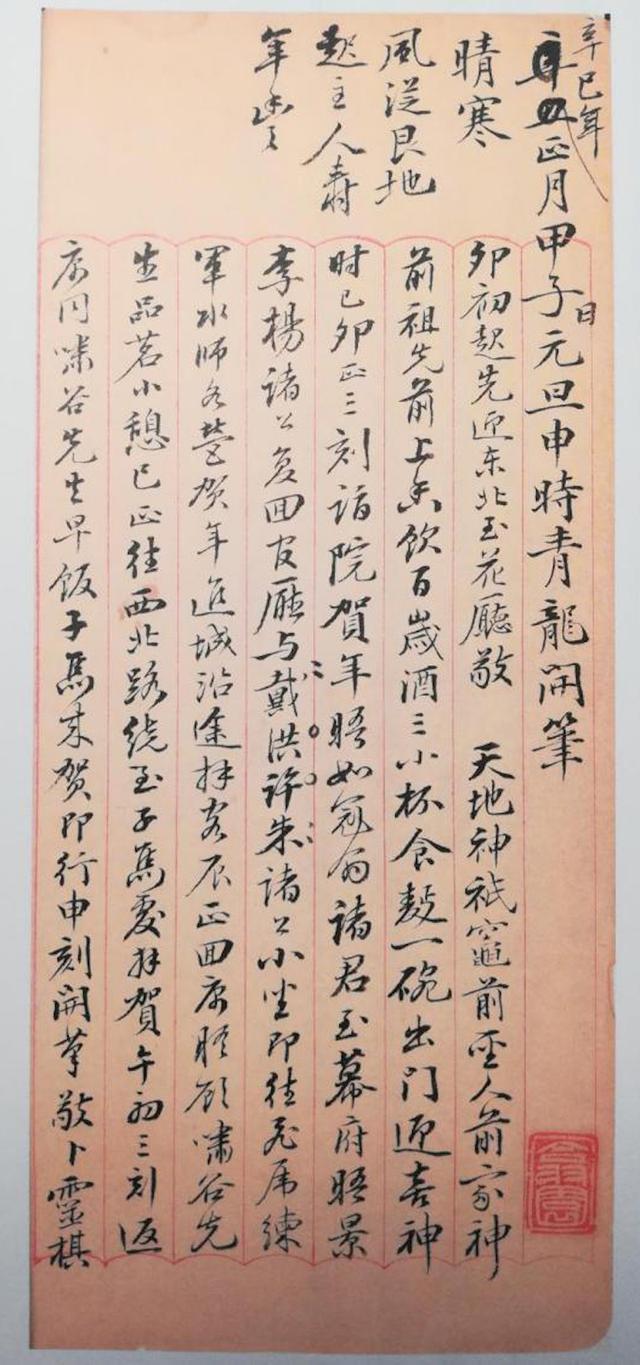 辛巳年
正月甲子日元旦申時青龍開筆
晴寒
風從艮地
起主人壽
年豐
卯初起先迎东北至花廳敬 天地神祇竈前聖人前家神
前祖先前上香飲百歲酒三小杯食麪一碗出门迎喜神
时已卯正三刻詣院賀年晤如冠翁諸君至幕府晤景
李楊諸公复回官廳与戴洪許朱諸公小坐即往飛虎練
軍水師各營贺年進城沿途拜客辰正回寓照顾嘯谷先
生品茗小憩巳正往西北路绕至子馬處拜賀午初三刻返
寓同嘯谷先生早饭子馬来贺即行申刻開筆敬卜靈棋